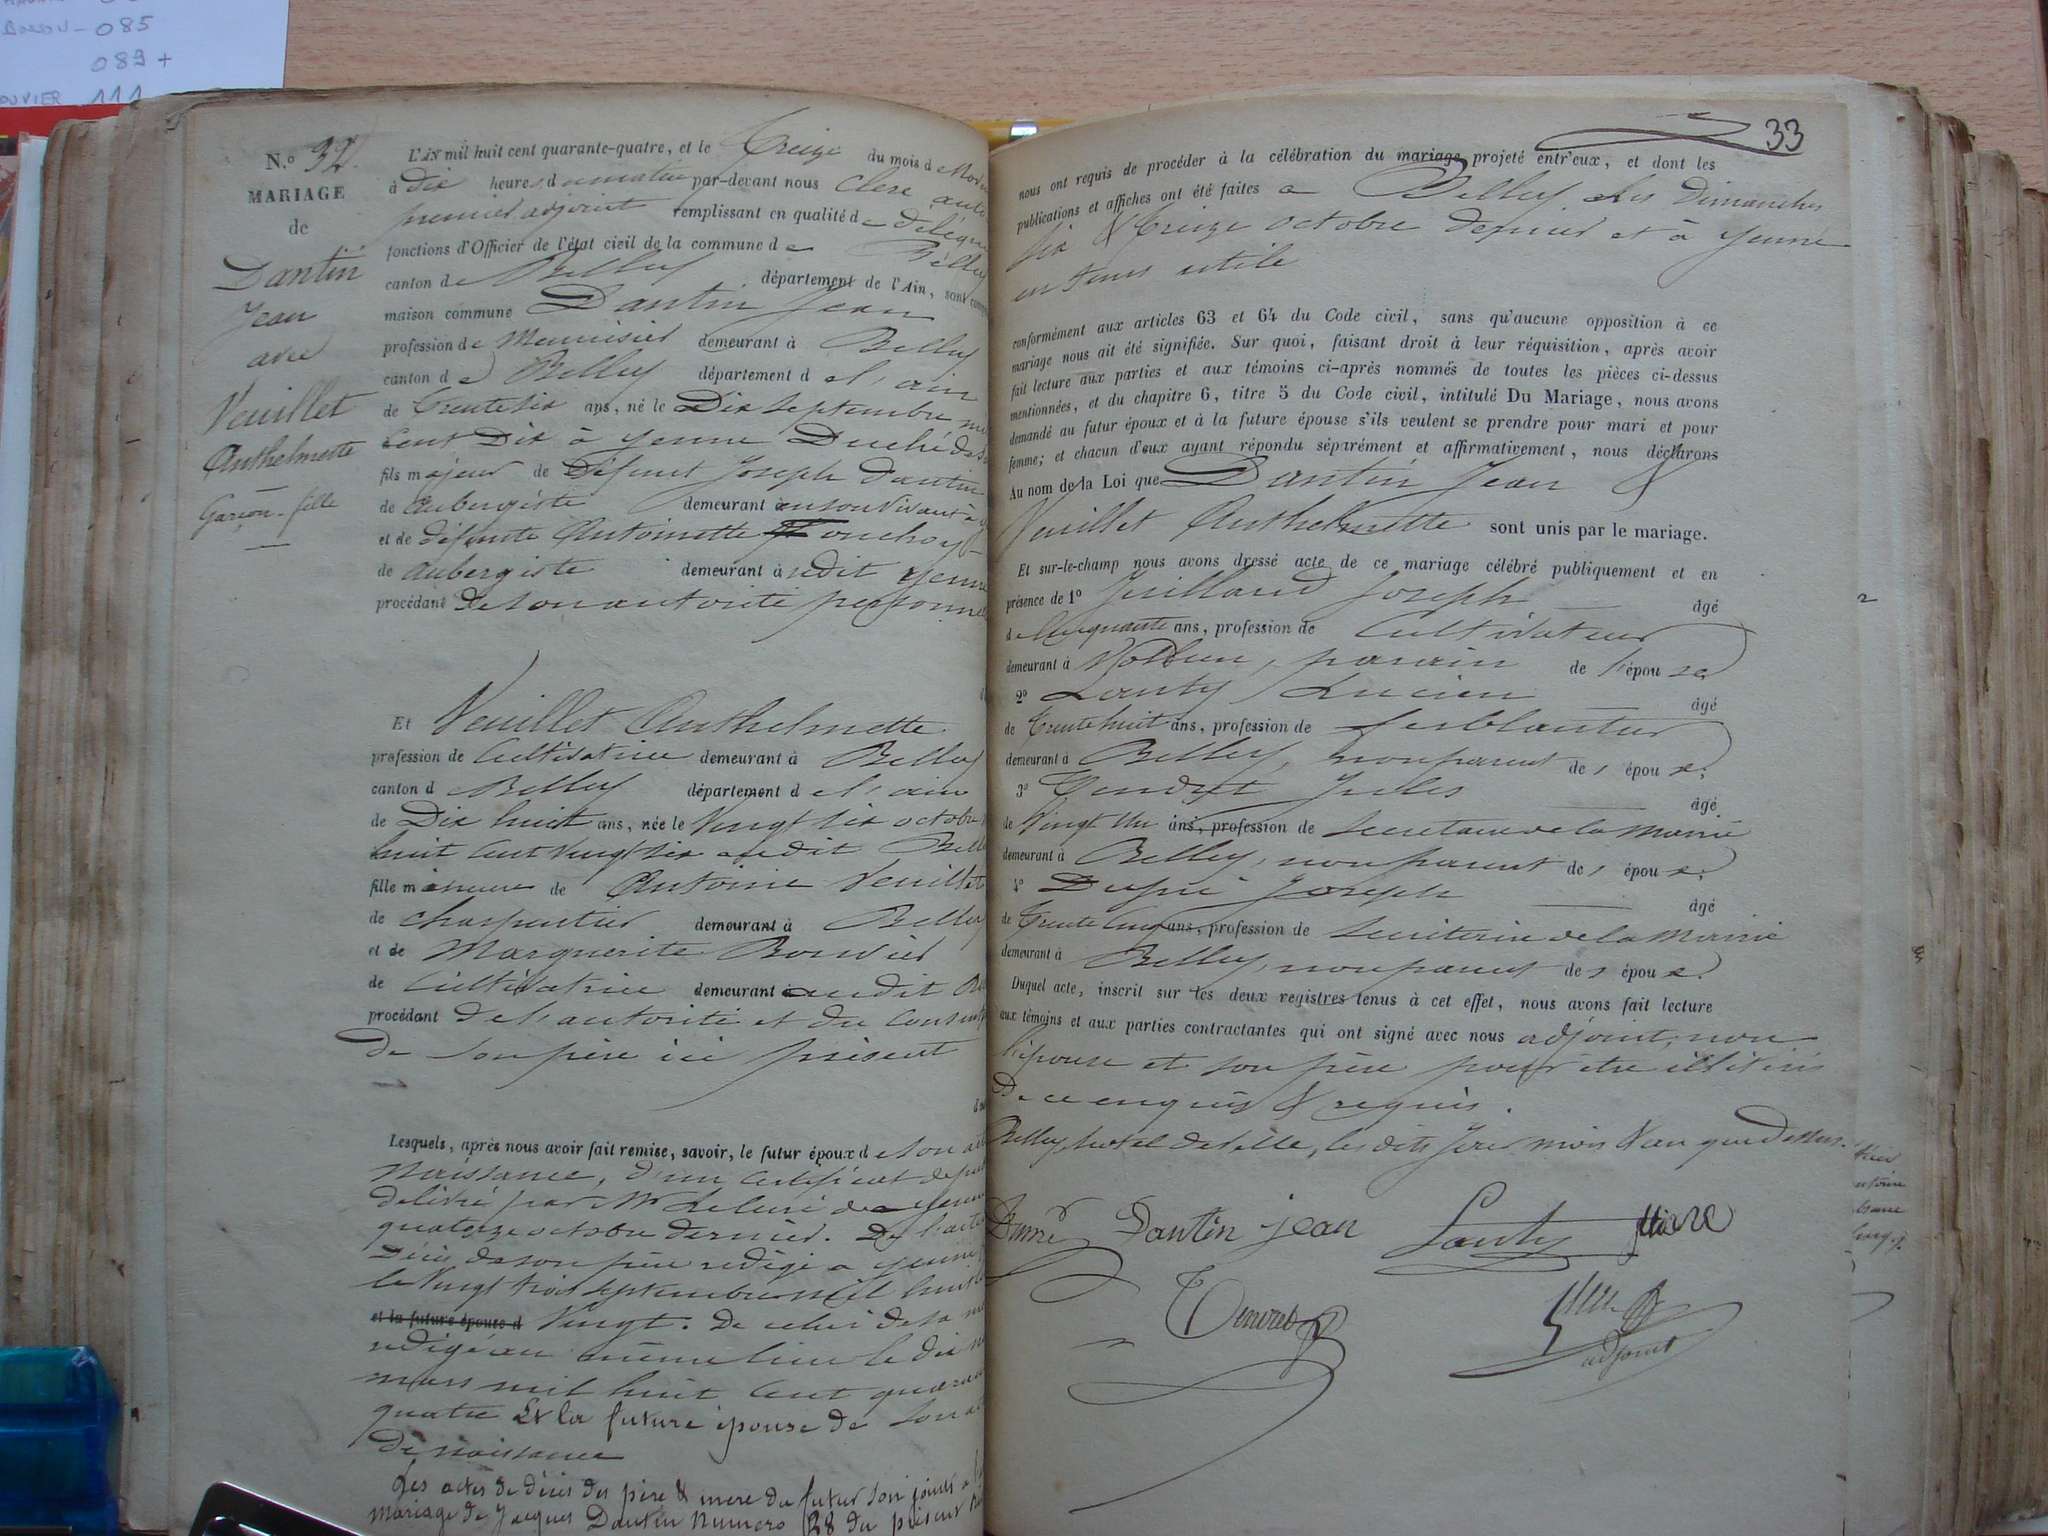 085
089 +
111
N.o 32.
MARIAGE
de
Dantin
Jean
avec
Veuillet
Anthelmette
Garçon - fille
L'an mil huit cent quarante-quatre, et le Treize du mois de
à dix heures du matin par-devant nous Clerc
premier adjoint remplissant en qualité de délégué
fonctions d'Officier de l'état civil de la commune de Belley
canton de Belley département de l'Ain, sont
maison commune Dantin Jean
profession de Menuisier demeurant à Belley
canton de Belley département de l'ain
de Trente six ans, né le Dix septembre
cent Dix à yenne Duché de
fils majeur de Défunt Joseph Dantin
de aubergiste demeurant en son vivant à
et de défunte Antoinette
de aubergiste demeurant à udit yenne
procédant de son autorité
Et Veuillet Anthelmette
profession de Cultivatrice demeurant à Belley
canton d Belley département de l'ain
de Dix huit ans, née le Vingt six octobre
huit cent vingt six audit
fille mineure de Antoine Veuillet
de charpentier demeurant à Belley
et de Marguerite Bouvier
de Cultivatrice demeurant audit
procédant de l'autorité et du
de son père ici présent
Lesquels, après nous avoir fait remise, savoir, le futur époux de son
Naissance, d'un certificat de
délivré par Mr Le Curé de yenne
quatorze octobre dernier. De l'acte
décès de son père rédigé a yenne
le vingt trois septembre mil huit
et la future épouse d Vingt. De celui de sa
rédigé au même lieu le dix
mars mil huit cent
quatre Et la future épouse de son
de naissance
Les actes de décès des père & mere du futur son joints a
mariage de Jacques Dantin numero 28 du présent
33
nous ont requis de procéder à la célébration du mariage projeté entr'eux, et dont les
publications et affiches ont été faites a Belley les Dimanches
six & treize octobre dernier et à yenne
en tems utile
conformément aux articles 63 et 64 du Code civil, sans qu'aucune opposition à ce
mariage nous ait été signifiée. Sur quoi, faisant droit à leur réquisition, après avoir
fait lecture aux parties et aux témoins ci-après nommés de toutes les pièces ci-dessus
mentionnées, et du chapitre 6, titre 5 du Code civil, intitulé Du Mariage, nous avons
demandé au futur époux et à la future épouse s'ils veulent se prendre pour mari et pour
femme; et chacun d'eux ayant répondu séparément et affirmativement, nous déclarons
Au nom de la Loi que Dantin Jean &
Veuillet Anthelmette sont unis par le mariage.
Et sur-le-champ nous avons dressé acte de ce mariage célébré publiquement et en
présence de 1o Juilland Joseph âgé
de Cinquante ans, profession de Cultivateur
demeurant à parain de l'épouse
2o Lanty Lucien âgé
de Trente huit ans, profession de ferblantier
demeurant à Belley, non parent des époux;
3o Jules âgé
de Vingt un ans, profession de Secretaire de la Mairie
demeurant à Belley, non parent des époux;
4o Joseph âgé
de Trente Cinq ans, profession de Secretaire de la Mairie
demeurant à Belley, non parent des époux.
Duquel acte, inscrit sur les deux registres tenus à cet effet, nous avons fait lecture
aux témoins et aux parties contractantes qui ont signé avec nous adjoint, non
l'épouse et son père pour être illitérés
De ce enquis & requis.
Belley, hotel de ville, les dits jour mois & an que dessus.
Dantin jean Lanty
adjoint